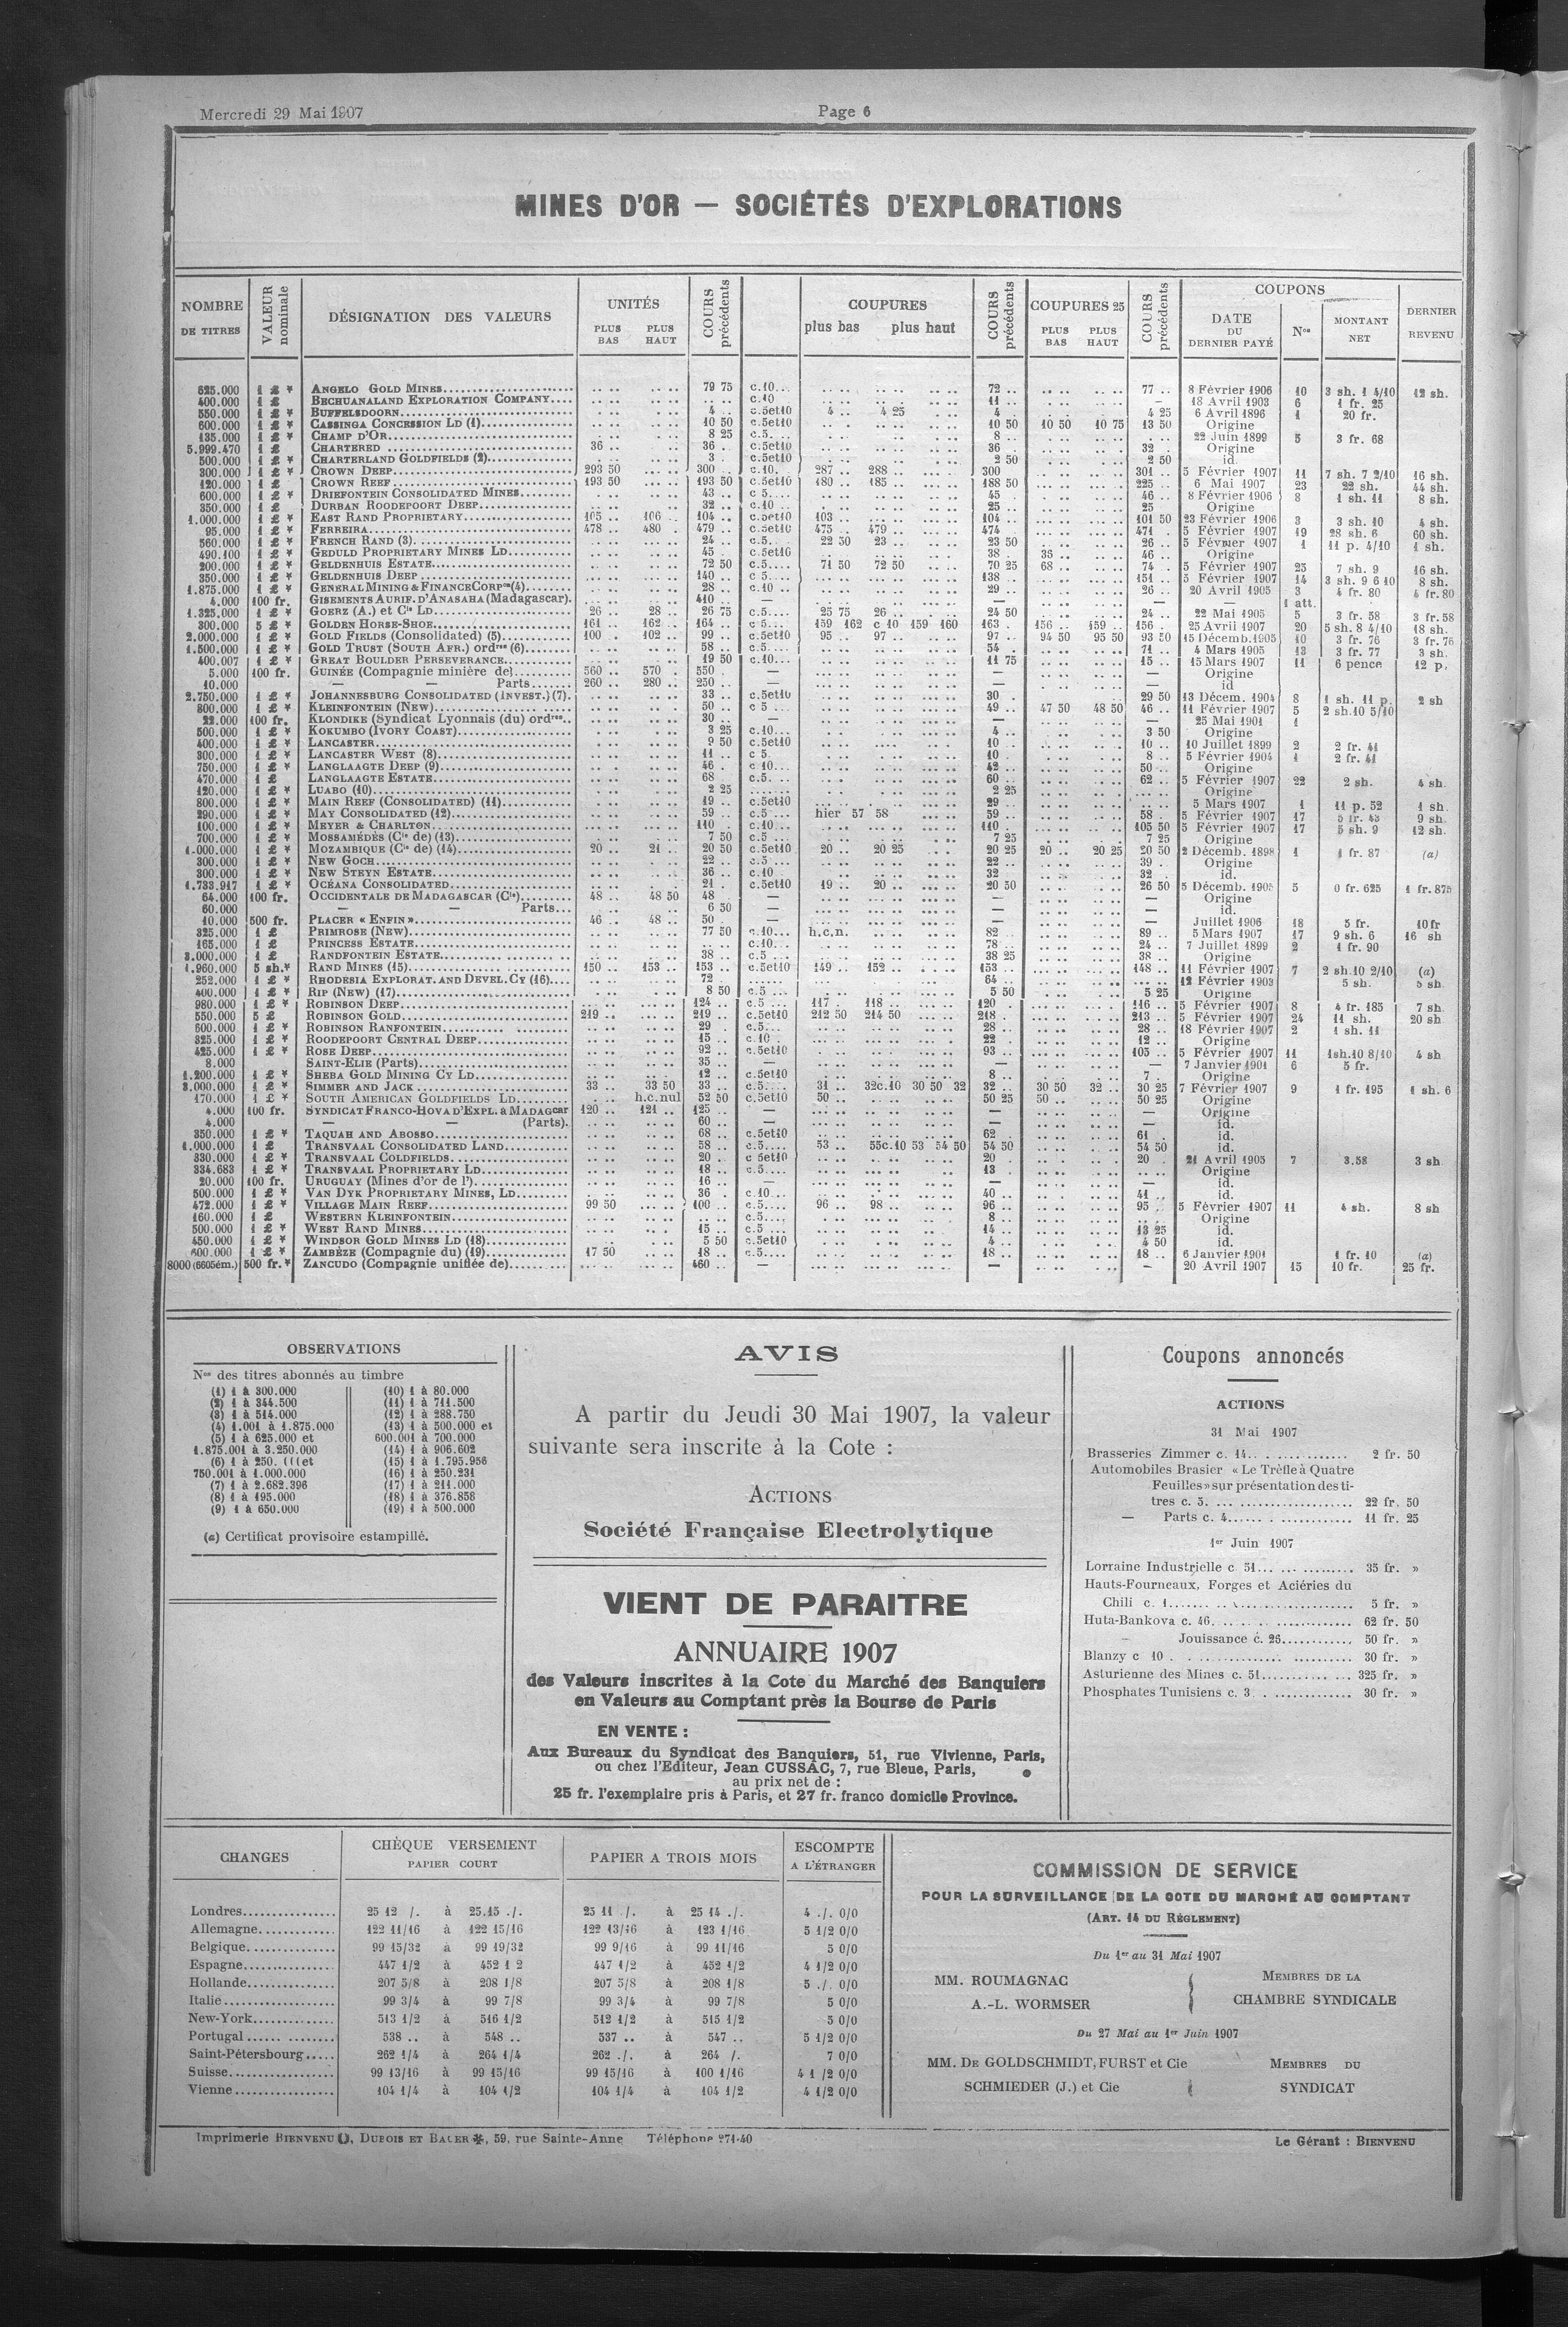 Mercredi 29 Mai 1907
Page 6
MINES D'OR — SOCIÉTÉS D'EXPLORATIONS
NOMBRE DE TITRES | VALEUR nominale | DÉSIGNATION DES VALEURS | UNITÉS PLUS BAS PLUS HAUT | COURS précédents | COUPURES plus bas plus haut | COURS précédents | COUPURES 25 PLUS BAS PLUS HAUT | COURS précédents | COUPONS DATE DU DERNIER PAYÉ | Nos | MONTANT NET | DERNIER REVENU
625.000 1 £ * ANGELO GOLD MINES 79 75 c.10 72 .. 77 .. 8 Février 1906 10 3 sh. 1 4/10 12 sh.
400.000 1 £ BECHUANALAND EXPLORATION COMPANY c.10 11 .. — 18 Avril 1903 6 1 fr. 25
550.000 1 £ * BUFFELSDOORN 4 .. c.5et10 4 .. 4 25 4 . 4 25 6 Avril 1896 1 20 fr.
600.000 1 £ * CASSINGA CONCESSION LD (1) 10 50 c.5et10 10 50 10 50 10 75 13 50 Origine
135.000 1 £ * CHAMP D'OR 8 25 c.5 8 .. 22 Juin 1899 5 3 fr. 68
5.999.470 1 £ CHARTERED 36 .. 36 . c.5et10 36 . 32 . Origine
500.000 1 £ * CHARTERLAND GOLDFIELDS (2) 3 . c.5et10 2 50 2 50 id.
300.000 1 £ * CROWN DEEP 293 50 300 .. c.10. 287 .. 288 .. 300 301 .. 5 Février 1907 11 7 sh. 7 2/10 16 sh.
120.000 1 £ CROWN REEF 193 50 193 50 c.5et10 180 .. 185 .. 188 50 225 .. 6 Mai 1907 23 22 sh. 44 sh.
600.000 1 £ * DRIEFONTEIN CONSOLIDATED MINES 43 .. c 5 45 . 46 .. 8 Février 1906 8 1 sh. 11 8 sh.
350.000 1 £ DURBAN ROODEPOORT DEEP 32 .. c.10 25 .. 25 Origine
1.000.000 1 £ * EAST RAND PROPRIETARY 105 .. 106 .. 104 .. c.5et10 103 .. 104 .. 101 50 23 Février 1906 3 3 sh. 10 4 sh.
95.000 1 £ * FERREIRA 478 .. 480 479 .. c.5et10 475 .. 479 .. 474 471 . 5 Février 1907 19 28 sh. 6 60 sh.
560.000 1 £ * FRENCH RAND (3) 24 .. c.5. 22 50 23 .. 23 50 26 .. 5 Février 1907 1 11 p. 4/10 1 sh.
490.100 1 £ * GEDULD PROPRIETARY MINES LD 45 . c.5et10 38 . 46 .. Origine
200.000 1 £ * GELDENHUIS ESTATE 72 50 c.5 71 50 72 50 70 25 68 .. 74 .. 5 Février 1907 25 7 sh. 9 16 sh.
350.000 1 £ * GELDENHUIS DEEP 140 .. c 5 138 .. 151 .. 5 Février 1907 14 3 sh. 9 6 10 8 sh.
1.875.000 1 £ * GENERAL MINING & FINANCE CORPon (4) 28 .. c.10 .. 29 .. 26 .. 20 Avril 1905 3 4 fr. 80 4 fr. 80
4.000 100 fr. GISEMENTS AURIF. D'ANASAHA (Madagascar). 410 .. — — — — 1 att.
1.325.000 1 £ * GOERZ (A.) et Cie LD 26 .. 28 .. 26 75 c.5 25 75 26 .. 24 50 24 .. 22 Mai 1905 5 3 fr. 58 3 fr. 58
300.000 5 £ * GOLDEN HORSE-SHOE 161 .. 162 .. 164 .. c 5 159 162 c 10 159 160 163 . 156 .. 159 .. 156 .. 25 Avril 1907 20 5 sh. 8 4/10 18 sh.
2.000.000 1 £ * GOLD FIELDS (Consolidated) (5) 100 . 102 .. 99 .. c.5et10 95 .. 97 .. 97 .. 94 50 95 50 93 50 15 Décemb.1905 10 3 fr. 76 3 fr. 76
1.500.000 1 £ * GOLD TRUST (SOUTH AFR.) ordres (6) 58 .. c.5 54 . 71 .. 4 Mars 1905 13 3 fr. 77 3 sh.
400.007 1 £ * GREAT BOULDER PERSEVERANCE 19 50 c.10 11 75 15 .. 15 Mars 1907 11 6 pence 12 p.
5.000 100 fr. GUINÉE (Compagnie minière de) 560 .. 570 . 550 . — — — Origine
10.000 — — Parts 260 .. 280 .. 250 .. — — — id
2.750.000 1 £ * JOHANNESBURG CONSOLIDATED (INVEST.) (7). 33 .. c.5et10 30 . 29 50 13 Décem. 1904 8 1 sh. 11 p. 2 sh
800.000 1 £ * KLEINFONTEIN (NEW) 50 .. c 5 49 .. 47 50 48 50 46 .. 11 Février 1907 5 2 sh.10 5/10
22.000 100 fr. KLONDIKE (Syndicat Lyonnais (du) ordres 30 .. — — — 25 Mai 1901 1
500.000 1 £ * KOKUMBO (IVORY COAST) 3 25 c.10 4 .. 3 50 Origine
400.000 1 £ * LANCASTER 9 50 c.5et10 10 .. 10 .. 10 Juillet 1899 2 2 fr. 41
300.000 1 £ * LANCASTER WEST (8) 11 .. c 5 10 . 8 .. 5 Février 1904 1 2 fr. 41
750.000 1 £ * LANGLAAGTE DEEP (9) 46 . c 10 42 .. 50 .. Origine
470.000 1 £ LANGLAAGTE ESTATE 68 . c.5 60 .. 62 .. 5 Février 1907 22 2 sh. 4 sh.
120.000 1 £ * LUABO (10) 2 25 2 25 Origine
800.000 1 £ * MAIN REEF (CONSOLIDATED) (11) 19 .. c.5et10 29 5 Mars 1907 1 11 p. 52 1 sh.
290.000 1 £ * MAY CONSOLIDATED (12) 59 .. c.5 hier 57 58 59 .. 58 .. 5 Février 1907 17 5 fr. 43 9 sh.
100.000 1 £ * MEYER & CHARLTON 110 . c.10 110 . 105 50 5 Février 1907 17 5 sh. 9 12 sh.
700.000 1 £ * MOSSAMÉDÈS (Cie de) (13) 7 50 c.5 7 25 7 25 Origine
1.000.000 1 £ * MOZAMBIQUE (Cie de) (14) 20 .. 21 . 20 50 c.5et10 20 .. 20 25 20 25 20 .. 20 25 20 50 2 Décemb. 1898 1 1 fr. 87 (a)
300.000 1 £ * NEW GOCH 22 .. c.5 22 .. 39 . Origine
300.000 1 £ * NEW STEYN ESTATE 36 .. c.10 32 .. 32 . id.
1.733.917 1 £ * OCÉANA CONSOLIDATED 21 . c.5et10 19 .. 20 .. 20 50 26 50 5 Décemb. 1905 5 0 fr. 625 1 fr. 875
64.000 100 fr. OCCIDENTALE DE MADAGASCAR (Cie) 48 .. 48 50 48 . — — — Origine
60.000 — — Parts... 6 50 — — — id.
10.000 500 fr. PLACER « ENFIN » 46 .. 48 .. 50 . — — — Juillet 1906 18 5 fr. 10 fr
325.000 1 £ PRIMROSE (NEW) 77 50 c.10 h.c.n. 82 .. 89 .. 5 Mars 1907 17 9 sh. 6 16 sh
165.000 1 £ PRINCESS ESTATE c.10 78 .. 24 .. 7 Juillet 1899 2 1 fr. 90
3.000.000 1 £ RANDFONTEIN ESTATE 38 .. c.5 38 25 38 .. Origine
1.960.000 5 sh.* RAND MINES (15) 150 .. 153 .. 153 .. c.5et10 149 .. 152 .. 153 .. 148 .. 11 Février 1907 7 2 sh.10 2/10 (a)
252.000 1 £ * RHODESIA EXPLORAT. AND DEVEL. CY (16) 72 .. 64 .. 12 Février 1903 5 sh. 5 sh.
400.000 1 £ * RIP (NEW) (17) 8 50 c.5 5 50 5 25 Origine
980.000 1 £ * ROBINSON DEEP 124 .. c.5 117 . 118 .. 120 . 116 .. 5 Février 1907 8 4 fr. 185 7 sh.
550.000 5 £ ROBINSON GOLD 219 .. 219 .. c.5et10 212 50 214 50 218 . 213 .. 5 Février 1907 24 11 sh. 20 sh
600.000 1 £ * ROBINSON RANFONTEIN 29 . c.5 28 .. 28 .. 18 Février 1907 2 1 sh. 11
325.000 1 £ * ROODEPOORT CENTRAL DEEP 15 .. c.10 22 . 12 .. Origine
425.000 1 £ * ROSE DEEP 92 .. c.5et10 93 .. 105 .. 5 Février 1907 11 1sh.10 8/10 4 sh
8.000 SAINT-ELIE (Parts) 35 .. — — — 7 Janvier 1901 6 5 fr.
1.200.000 1 £ * SHEBA GOLD MINING CY LD 12 .. c.5et10 8 .. 7 . Origine
3.000.000 1 £ * SIMMER AND JACK 33 .. 33 50 33 .. c.5 31 .. 32c.10 30 50 32 32 .. 30 50 32 .. 30 25 7 Février 1907 9 1 fr. 195 1 sh. 6
170.000 1 £ * SOUTH AMERICAN GOLDFIELDS LD h.c.nul 52 50 c.5et10 50 .. 50 25 50 .. 50 25 Origine
4.000 100 fr. SYNDICAT FRANCO-HOVA D'EXPL. à MADAGcar 120 .. 121 .. 125 .. — — — Origine
4.000 — — (Parts). 60 .. — — — id.
350.000 1 £ * TAQUAH AND ABOSSO 68 .. c.5et10 62 . 61 . id.
1.000.000 1 £ TRANSVAAL CONSOLIDATED LAND 58 .. c.5 53 .. 55c.10 53 54 50 54 50 54 50 id.
330.000 1 £ * TRANSVAAL COLDFIELDS 20 .. c 5et10 20 . 20 . 21 Avril 1905 7 3.58 3 sh
334.683 1 £ * TRANSVAAL PROPRIETARY LD 18 .. c.5 13 . Origine
20.000 100 fr. URUGUAY (Mines d'or de l') 16 .. — — — id.
500.000 1 £ * VAN DYK PROPRIETARY MINES, LD 36 . c.10 40 .. 41 .. id.
472.000 1 £ * VILLAGE MAIN REEF 99 50 100 .. c.5 96 .. 98 .. 96 .. 95 . 5 Février 1907 11 4 sh. 8 sh
160.000 1 £ WESTERN KLEINFONTEIN c.5 8 .. Origine
500.000 1 £ * WEST RAND MINES 15 .. c.5 14 .. 13 25 id.
450.000 1 £ * WINDSOR GOLD MINES LD (18) 5 50 c.5et10 4 .. 4 50 id.
600.000 1 £ * ZAMBÈZE (Compagnie du) (19) 17 50 18 .. c.5 18 .. 18 .. 6 Janvier 1901 1 fr. 10 (a)
8000 (6605ém.) 500 fr.* ZANCUDO (Compagnie unifiée de) 460 .. — — — 20 Avril 1907 15 10 fr. 25 fr.
OBSERVATIONS
Nos des titres abonnés au timbre
(1) 1 à 300.000
(2) 1 à 344.500
(3) 1 à 514.000
(4) 1.001 à 1.875.000
(5) 1 à 625.000 et
1.875.001 à 3.250.000
(6) 1 à 250. et
750.001 à 1.000.000
(7) 1 à 2.682.396
(8) 1 à 195.000
(9) 1 à 650.000
(10) 1 à 80.000
(11) 1 à 711.500
(12) 1 à 288.750
(13) 1 à 500.000 et
600.001 à 700.000
(14) 1 à 906.602
(15) 1 à 1.795.956
(16) 1 à 250.231
(17) 1 à 211.000
(18) 1 à 376.858
(19) 1 à 500.000
(a) Certificat provisoire estampillé.
AVIS
A partir du Jeudi 30 Mai 1907, la valeur
suivante sera inscrite à la Cote :
ACTIONS
Société Française Electrolytique
VIENT DE PARAITRE
ANNUAIRE 1907
des Valeurs inscrites à la Cote du Marché des Banquiers
en Valeurs au Comptant près la Bourse de Paris
EN VENTE :
Aux Bureaux du Syndicat des Banquiers, 51, rue Vivienne, Paris,
ou chez l'Editeur, Jean CUSSAC, 7, rue Bleue, Paris,
au prix net de :
25 fr. l'exemplaire pris à Paris, et 27 fr. franco domicile Province.
Coupons annoncés
ACTIONS
31 Mai 1907
Brasseries Zimmer c. 14 2 fr. 50
Automobiles Brasier « Le Trèfle à Quatre
Feuilles » sur présentation des ti-
tres c. 5. 22 fr. 50
— Parts c. 4 11 fr. 25
1er Juin 1907
Lorraine Industrielle c. 51 35 fr. »
Hauts-Fourneaux, Forges et Aciéries du
Chili c. 1 5 fr. »
Huta-Bankova c. 46 62 fr. 50
— Jouissance c. 26 50 fr. »
Blanzy c 10 30 fr. »
Asturienne des Mines c. 51 325 fr. »
Phosphates Tunisiens c. 3 30 fr. »
CHANGES | CHÈQUE VERSEMENT PAPIER COURT | PAPIER A TROIS MOIS | ESCOMPTE A L'ÉTRANGER
Londres 25 12 /. à 25.15 ./. 25 11 /. à 25 14 ./. 4 ./. 0/0
Allemagne 122 11/16 à 122 15/16 122 13/16 à 123 1/16 5 1/2 0/0
Belgique 99 15/32 à 99 19/32 99 9/16 à 99 11/16 5 0/0
Espagne 447 1/2 à 452 1 2 447 1/2 à 452 1/2 4 1/2 0/0
Hollande 207 5/8 à 208 1/8 207 5/8 à 208 1/8 5 ./. 0/0
Italie 99 3/4 à 99 7/8 99 3/4 à 99 7/8 5 0/0
New-York 513 1/2 à 516 1/2 512 1/2 à 515 1/2 5 0/0
Portugal 538 .. à 548 .. 537 .. à 547 .. 5 1/2 0/0
Saint-Pétersbourg 262 1/4 à 264 1/4 262 ./. à 264 /. 7 0/0
Suisse 99 13/16 à 99 15/16 99 15/16 à 100 1/16 4 1 /2 0/0
Vienne 104 1/4 à 104 1/2 104 1/4 à 104 1/2 4 1/2 0/0
COMMISSION DE SERVICE
POUR LA SURVEILLANCE DE LA COTE DU MARCHÉ AU COMPTANT
(ART. 14 DU RÈGLEMENT)
Du 1er au 31 Mai 1907
MM. ROUMAGNAC
A.-L. WORMSER
MEMBRES DE LA
CHAMBRE SYNDICALE
Du 27 Mai au 1er Juin 1907
MM. DE GOLDSCHMIDT, FURST et Cie
SCHMIEDER (J.) et Cie
MEMBRES DU
SYNDICAT
Imprimerie BIENVENU, DUBOIS ET BAUER, 59, rue Sainte-Anne Téléphone 271-40
Le Gérant : BIENVENU